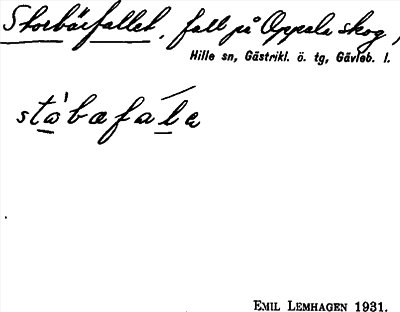 Storbärfallet, fall på Oppala skog,
Hille sn, Gästrikl. ö. tg, Gävleb. l.
stàbæfála
EMIL LEMHAGEN 1931.